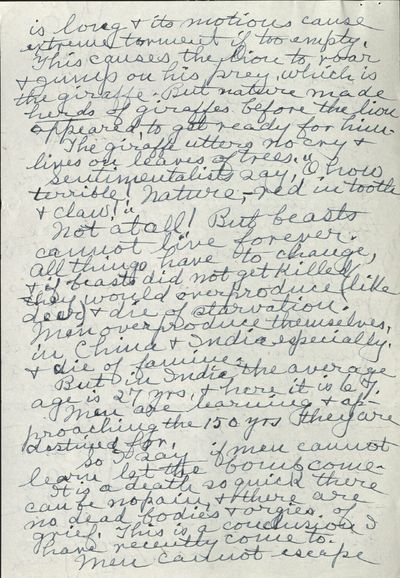 is long & its motions cause
extreme torment if too empty.
This causes the lion to roar
& jump on his prey, which is
the giraffe. But nature made
herds of giraffes before the lion
appeared, to get ready for him.
The giraffe utters no cry &
lives on leaves of trees.
Sentimentalists say, "O how
terrible! Nature, red in tooth
& claw!"
Not at all! But beasts
cannot live forever.
All things have to change,
& if beasts did not get killed
they would overproduce (like
deer) & die of starvation.
Men overproduce themselves,
in China & India especially.
& die of famine.
But in India the average
age is 27 yrs, & here it is 67.
Men are learning & ap-
proaching the 150 yrs they are
destined for.
So I say if men cannot
learn let the bomb come.
It is a death so quick there
can be no pain, & there are
no dead bodies & orgies of
grief. This is a conclusion I
have recently come to.
Men cannot escape